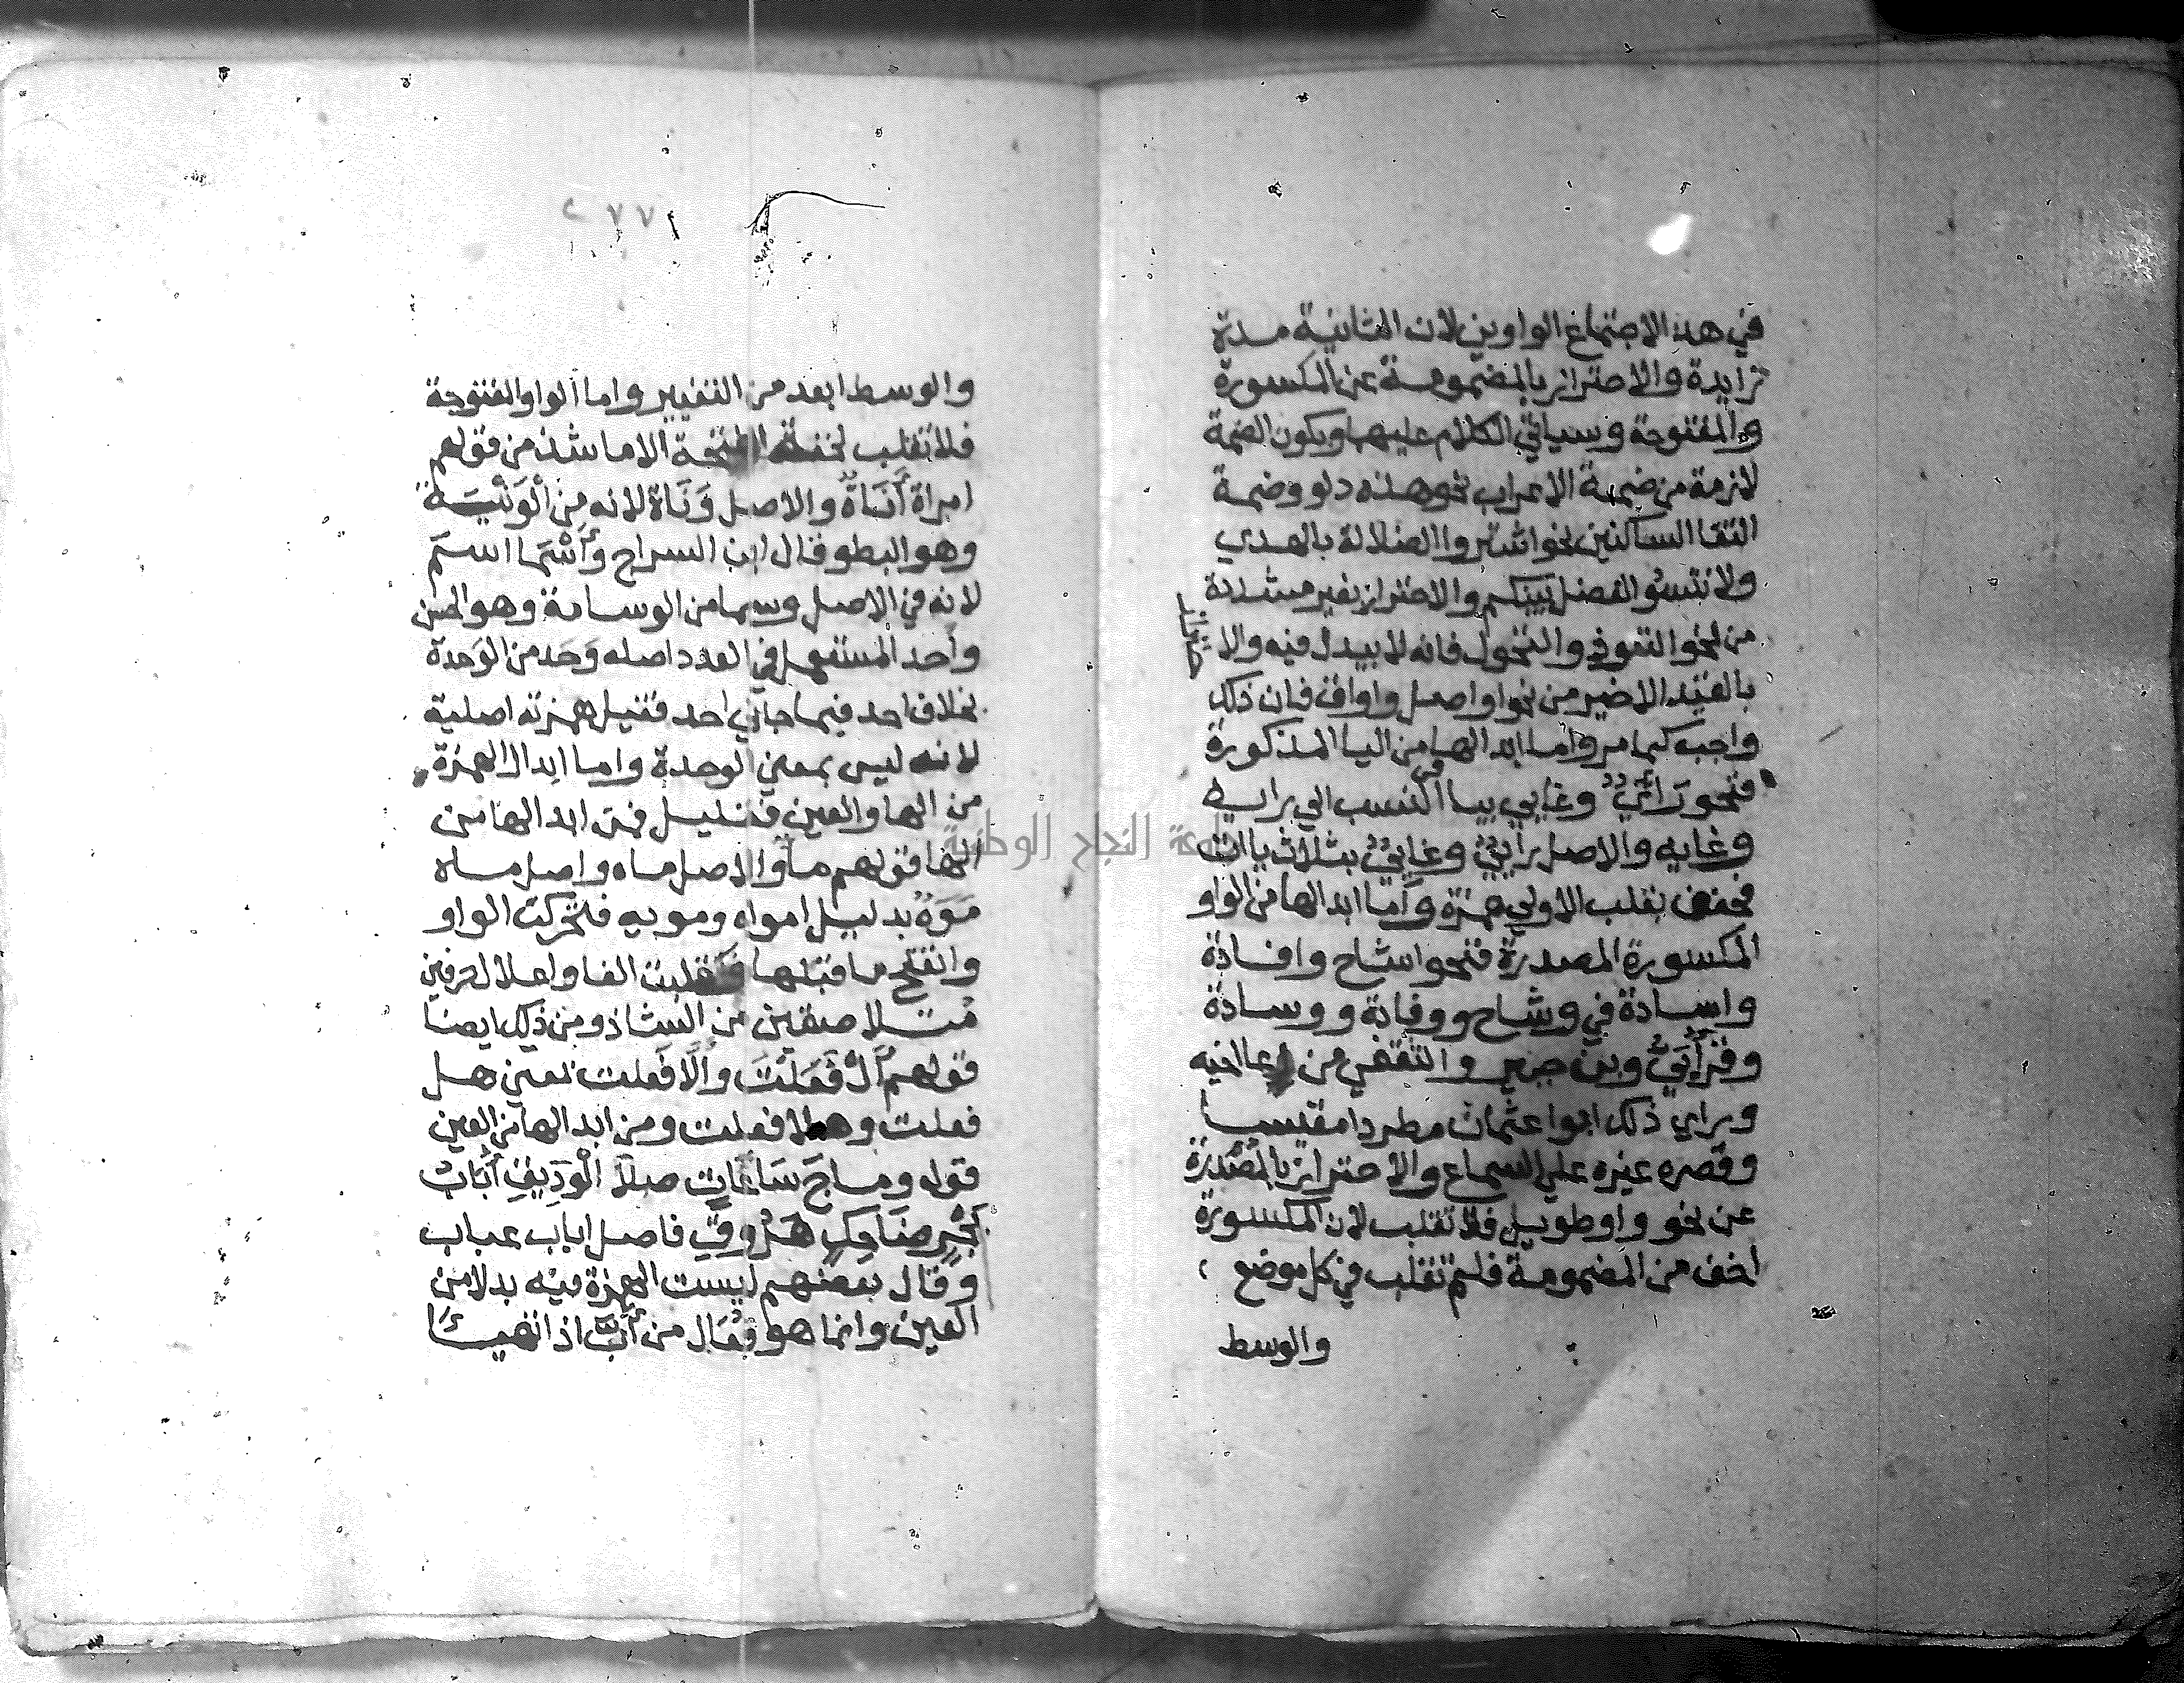 في هذا الاجتماع الواوين لان الثانية مدة
زايدة والاحتراز بالمضمومة عن المكسورة
والمفتوحة وسياتي الكلام عليهما وبكون الضمة
لازمة من ضمة الاعراب نحو هذه دلو وضمة
التقا الساكنين نحو اشتروا الضلالة بالهدي
ولا تنسوُا الفضل بينكم والاحتراز بغير مشددة
من نحو التعوذ والتحول فانه لا يبدل فيه والا
حتراز
بالقيد الاخير من نحو اواصل واواق فان ذلك
واجب كما مر واما ابدالها من اليا المذكورة
فنحو رَائيٌّ وغايي بيا النسب الي رايه
في
وغايه والاصل راييٌّ وغاييٌّ بثلاث ياات
فخفف بقلب الاولي همزة وأما ابدالها من الواو
المكسورة المصدرة فنحو اشاح وافادة
واسادة في وشاح ووفادة ووسادة
وقرا أبيّ وبن جبير والثقفي من اعا اخيه
وراي ذلك ابوا عثمان مطردا مقيسا
وقصره غيره علي السماع والاحتراز بالمُصَدرَة
عن نحو واو طويل فلا تقلب لان المكسورة
اخف من المضمومة فلم تقلب في كل موضع
والوسط
٢٧٧
والوسط ابعد من التغيير واما الواو المفتوحة
فلا تقلب لخفة الفتحة الا ما شذ من قولهم
امراة أَنَاةٌ والاصل وَنَاة لانه مِن الْوَنْيَة
وهو البطو قال ابن السراج وأَسْمَا اسم
لانه في الاصل وسما من الوسامة وهو الحسن
وأحد المستعمل في العدد اصله وَحَد من الوَحدة
بخلاف احد فيما جاني احد فقيل همزته اصلية
لانه ليس بمعني الوحدة واما ابدال الهمزة
من الها والعين فقليل فمن ابدالها من
الها قولهم ماٌ والاصل ماه واصل ماه
مَوَهٌ بدليل امواه ومويه فتحركت الواو
وانفتح ما قبلها فقلبت الفا واعلال حرفين
متلاصقين من الشاذ ومن ذلك ايضا
قولهم أَلْ فَعَلْتَ وألَّا فَعلت بمعني هل
فعلت وهلا فعلت ومن ابدالها من العين
قوله وماجَ سَاعَاتٍ ملَا الْوَدِيقِ أُبَابُ
بَحْرٍ ضَاحِكٍ هَزُوقٍ فاصل اباب عباب
وقال بعضهم ليست الهمزة فيه بدلا من
العين وانما هو فُعَال من أَبَّ اذا تهيئا
جامعة النجاح الوطنية